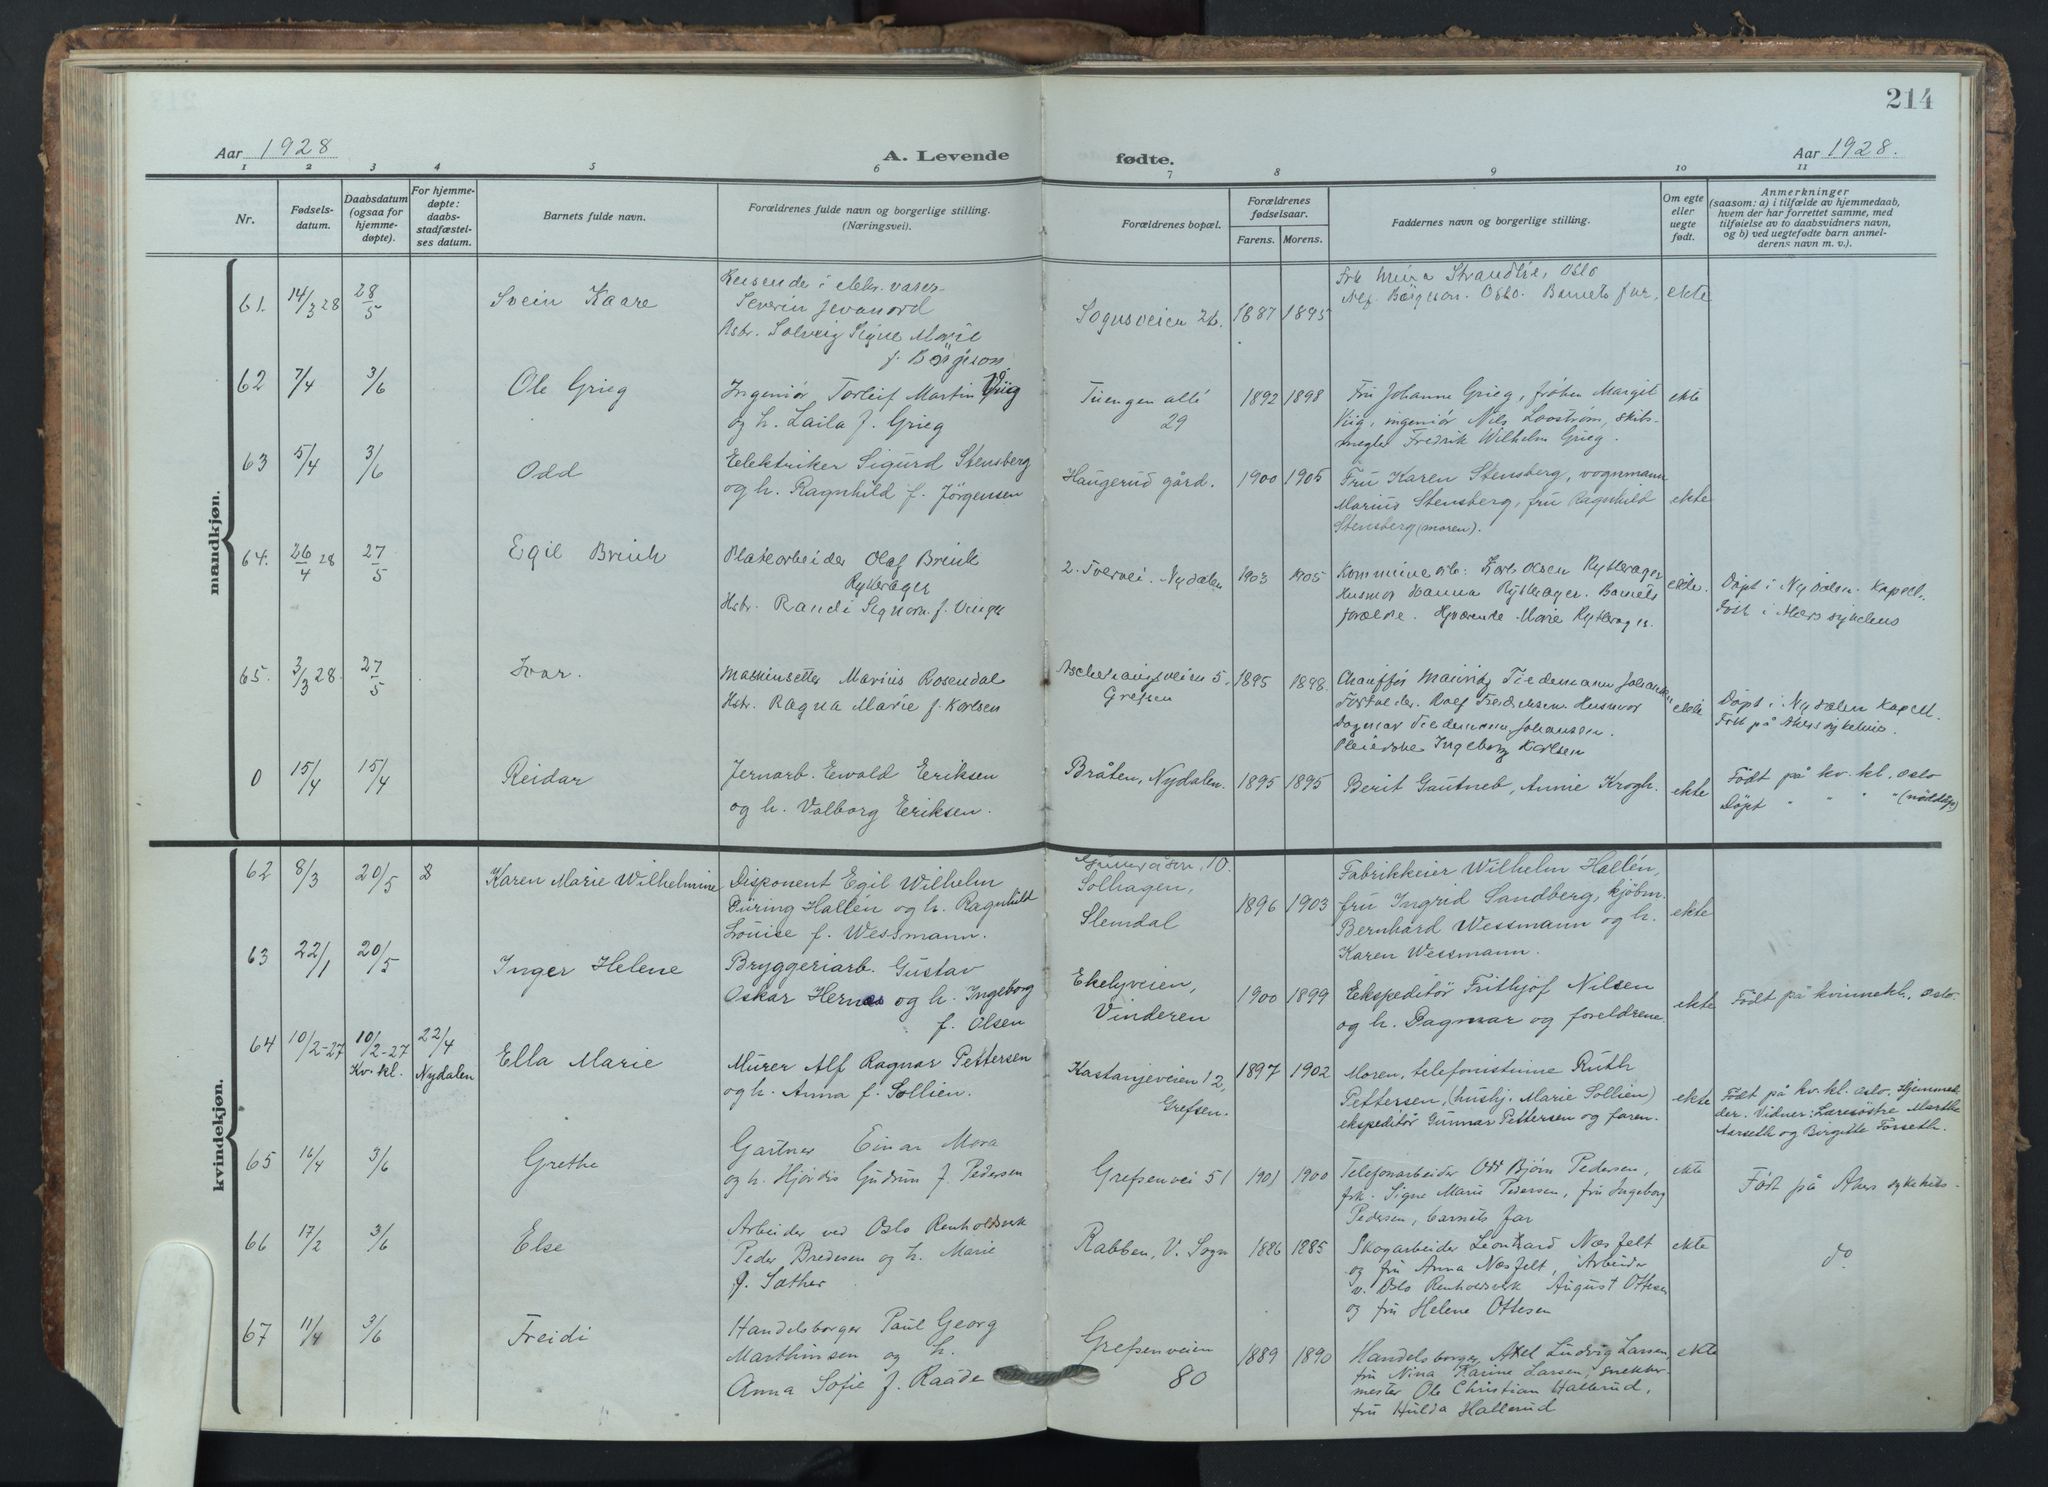 214
Aar 1928
A. Levende
fødte.
Aar 1928.
1 2 3 4 5 6 7 8 9 10 11
Nr.
Fødsels-
datum.
Daabsdatum
(ogsaa for
hjemme-
døpte).
For hjemme-
døpte:
daabs-
stadfæstel-
ses datum.
Barnets fulde navn.
Forældrenes fulde navn og borgerlige stilling.
(Næringsvei).
Forældrenes bopæl.
Forældrenes
fødselsaar.
Farens. Morens.
Faddernes navn og borgerlige stilling.
Om egte
eller
uegte
født.
Anmerkninger
(saasom: a) i tilfælde av hjemmedaab,
hvem der har forrettet samme, med
tilføielse av to daabsvidners navn,
og b) ved uegtefødte barn anmel-
derens navn m. v.).
mandkjøn.
61. 14/3 28 28/5
Svein Kaare
Reisende i elektr. varer
Severin Jevanord
Hstr. Solveig Signe Marie
f. Børgeson
Sognsveien 26.
1887 1895
Oslo
Oslo. Barnets far,
ekte
62 7/4 3/6
Ole Grieg
Ingeniør Torleif Martin Viig
og h. Laila f. Grieg
Tuengen allé
29
1892 1898
Fru Johanne Grieg, frøken Margit
Viig, ingeniør Nils Lovstrøm, skibs-
megler Fredrik Wilhelm Grieg.
ekte
63 5/4 3/6
Odd
Elektriker Sigurd Stensberg
og h. Ragnhild f. Jørgensen
Haugerud gård.
1900 1905
Fru Karen Stensberg, vognmann
Marius Stensberg, fru Ragnhild
Stensberg (moren).
ekte
64. 26/4 28 27/5
Egil Breiek
Platearbeider Olaf Breiek
Rytterager
Hstr. Randi
2. Tvervei. Nydalen
1903 1905
Karl Olsen Rytterager
Husmor Hanna Rytterager. Barnets
forældre. Marie Rytterager.
ekte.
Døpt i Nydalen Kapell.
Født i Akers sykehus
65. 3/3 28. 27/5
Ivar.
Maskinsetter Marius Rosendal
Hstr. Ragna Marie f. Karlsen
Aschehougsveien 5.
Grefsen
1895 1898.
Chauffør Tiedemann Johansen
Husmor
Dagmar Tiedemann Johansen.
Ingeborg Karlsen
ekte
Døpt i Nydalen Kapell.
Født på Akers sykehus.
0 15/4 15/4
Reidar
Jernarb. Ewald Eeriksen
og h. Valborg Eeriksen.
Bråten, Nydalen.
1895 1895
Berit Gautneb, Annie Krogh.
ekte
Født på kv. kl., Oslo
Døpt " " " " (nøddåp)
kvindekjøn.
62 8/3 20/5
Karen Marie Wilhelmine
Disponent Egil Wilhelm
Düring Hallén og h. Ragnhild
Louise f. Wessmann.
10.
Solhagen,
Slemdal
1896 1903
Fabrikkeier Wilhelm Hallén,
fru Ingrid Sandberg, kjøbm.
Bernhard Wessmann og h.
Karen Wessmann.
ekte
63 22/1 20/5
Inger Helene
Bryggeriarb. Gustav
Oskar Hernes og h. Ingeborg
f. Olsen
Ekelyveien,
Vinderen
1900 1899
Ekspeditør Frithjof Nilsen
og h. Dagmar og foreldrene.
ekte
Født på kvinnekl., Oslo.
64 10/2-27 10/2-27 22/4
Kv. kl. Nydalen
Ella Marie
Murer Alf Ragnar Pettersen
og h. Anna f. Sollien.
Kastanjeveien 12,
Grefsen.
1897 1902
Moren, telefonistinne Ruth
Pettersen, (hushj. Marie Sollien)
ekspeditør Gunnar Pettersen og faren.
ekte
Født på kv. kl. Oslo. Hjemme-
Vidner: Læresøstre Marthe
Aarseth og Birgitte Forseth.
65 16/4 3/6
Grethe
Gartner Einar Mora
og h. Hjørdis Gudrun f. Pedersen
Grefsenvei 51
1901 1900
Telefonarbeider Odd Bjørn Pedersen,
frk. Signe Marie Pedersen, fru Ingeborg
Pedersen, barnets far
ekte
Født på Akers sykehus.
66 17/2 3/6
Else
Arbeider ved Oslo Renholdsverk
Peder Bredesen og h. Marie
f. Sæther
Rabben, V. Sogn
1886 1885
Skogarbeider Leonhard Næsfelt
og fru Anna Næsfelt, Arbeider
v. Oslo Renholdsverk August Ottesen
og fru Helene Ottesen
ekte
do.
67 11/4 3/6
Freidi
Handelsborger Paul Georg
Marthinsen og h.
Anna Sofie f. Raade
Grefsenveien
80
1889 1890
Handelsborger Axel Ludvig Larsen,
fru Nina Karine Larsen, snekker-
mester Ole Christian Hallerud,
fru Hulda Hallerud
ekte